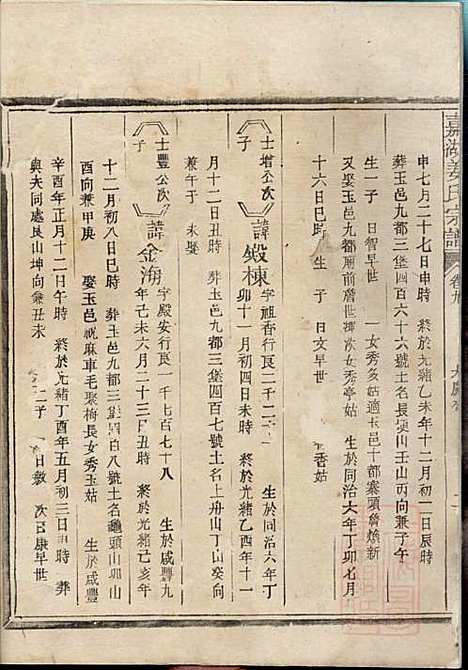 嘉湖姜氏宗譜 卷九
申七月二十七日申時 終於光緒乙未年十二月初一日辰時
葬玉邑九都三堡四百六十六號土名長垅山壬山丙向兼子午
生一子 日智早世 一女秀多姑適玉邑十都寨頭詹煥新
又娶玉邑九都廟前詹世梆次女秀亭姑 生於同治六年丁卯七月
十六日巳時 生 子 日文早世 香姑
士增公次子 諱毀棟 字祖香行良一千二 生於同治六年丁
卯十一月初四日未時 終於光緒乙酉年十一
月十二日丑時 葬玉邑九都三堡四百七號土名上舟山丁山癸向
兼午子 未娶
士豐公次子 諱金海 字殿安行良一千七百七十八 生於咸豐九
年己未六月二十三日丑時 終於光緒己亥年
十二月初八日巳時 葬玉邑九都三堡四百八號土名龜頭山卯山
酉向兼甲庚 娶玉邑祝麻車毛聚梅長女秀玉姑 生於咸豐
辛酉年正月十二日午時 終於光緒丁酉年五月初三日 時 葬
與夫同處艮山坤向兼丑未 子 日敬 次日康早世